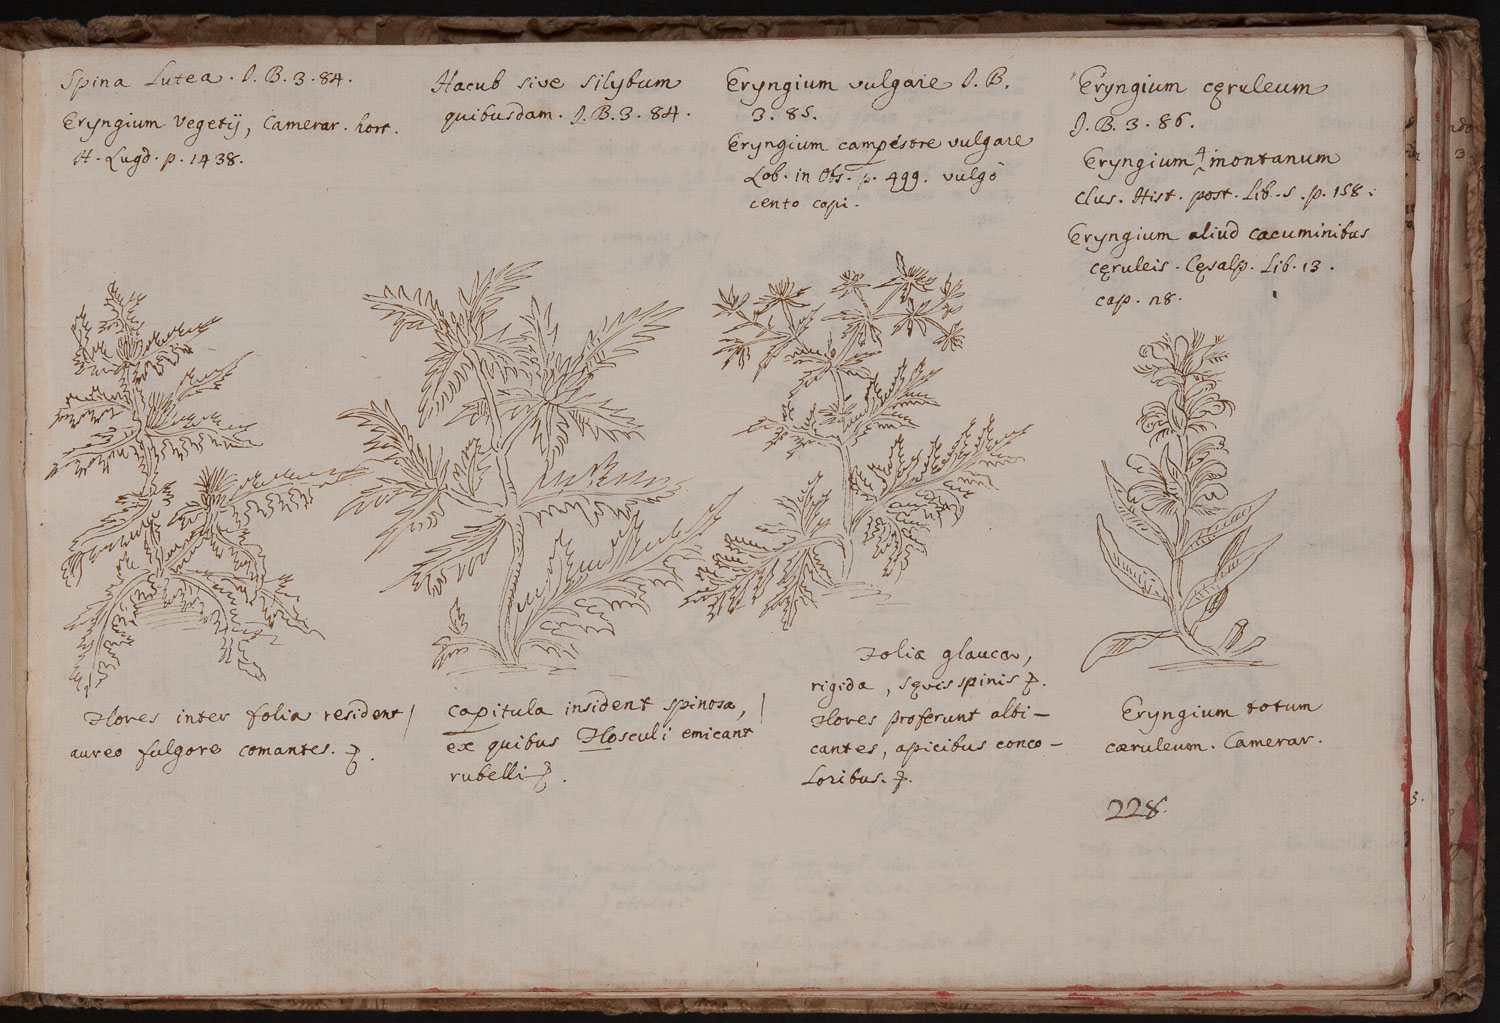 Spina Lutea. J. B. 3. 84.
Eryngium Vegetij, Camerar. hort.
H. Lugd. p. 1438.
Hacub sive Silybum
quibusdam. J. B. 3. 84.
Eryngium vulgare J. B.
3. 85.
Eryngium campestre vulgare
Lob. in Obs. p. 499. vulgò
cento capi.
Eryngium cęruleum
J. B. 3. 86.
Eryngium 4 montanum
Clus. Hist. post. Lib. 5. p. 158.
Eryngium aliud cacuminibus
cęruleis. Cęsalp. Lib. 13.
cap. 28.
Flores inter folia resident
aureo fulgore comantes.
Capitula insident spinosa,
ex quibus Flosculi emicant
rubelli
Foliæ glaucæ,
rigidæ, sęvis spinis
Flores proferunt albi-
cantes, apicibus conco-
loribus.
Eryngium totum
cæruleum. Camerar.
228.